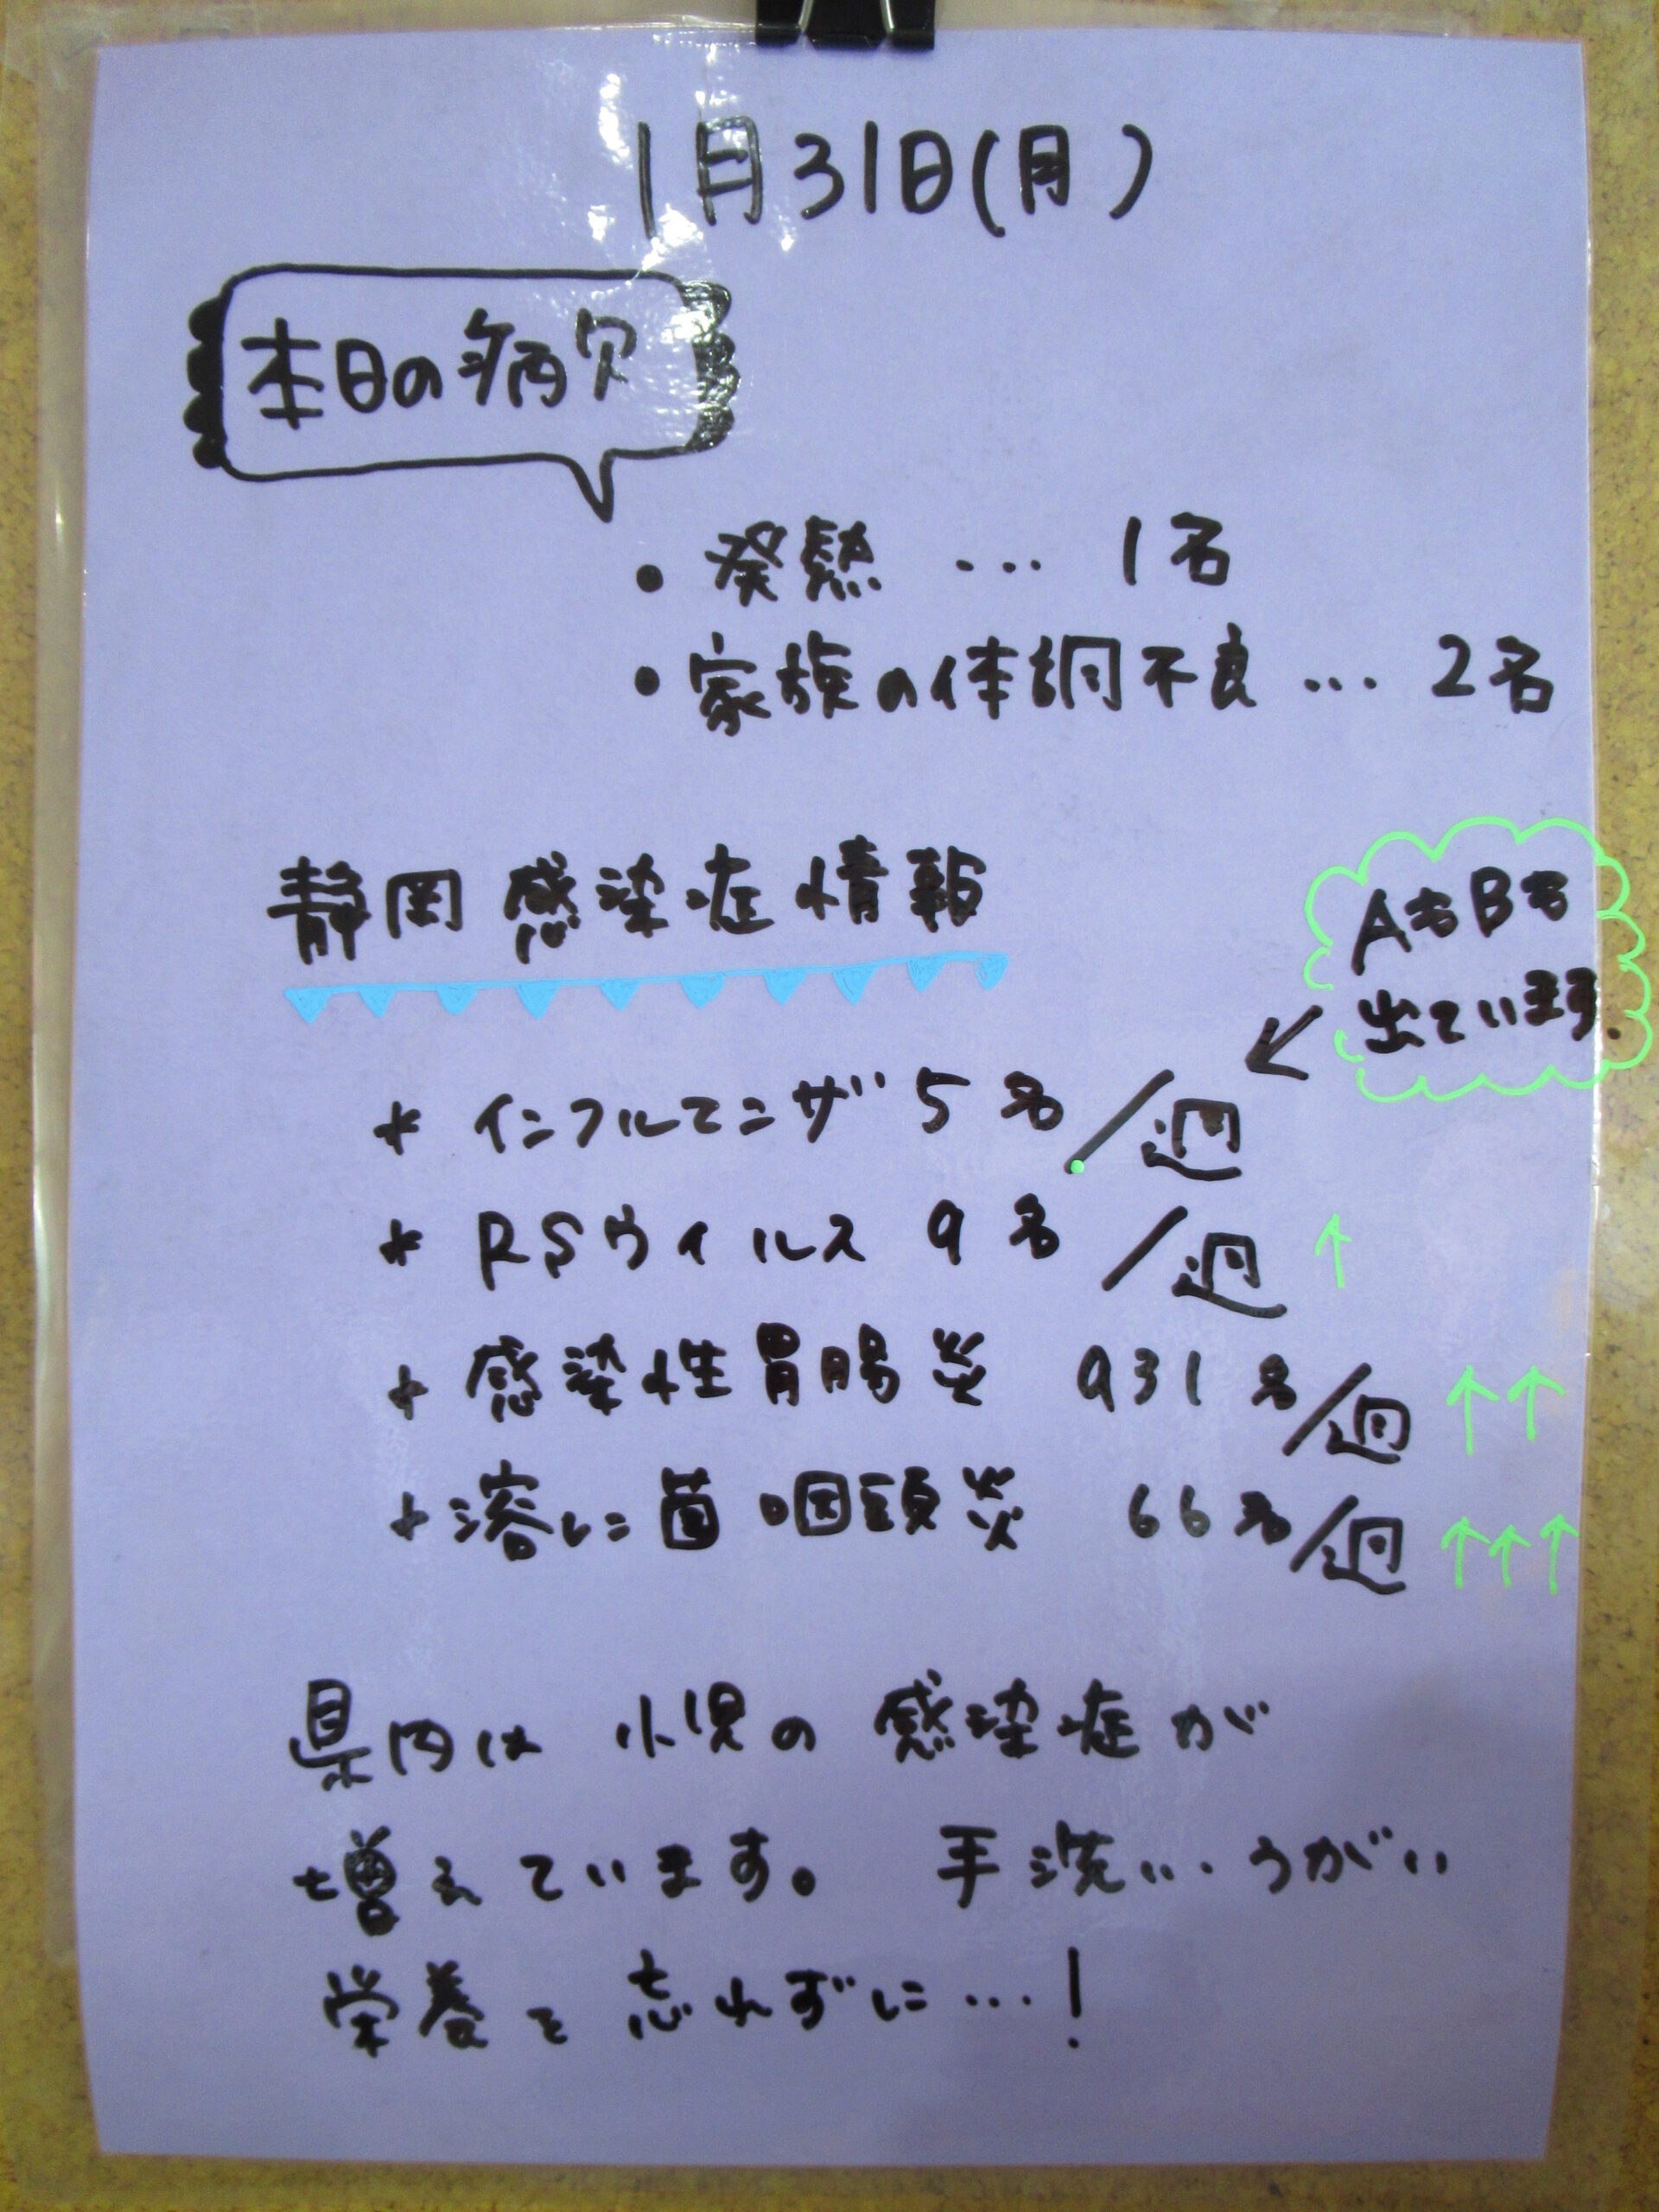 1月31日(月)
本日の病欠
・発熱 … 1名
・家族の体調不良 … 2名
静岡感染症情報
AもBも
出ています.
* インフルエンザ 5名/週
* RSウイルス 9名/週 ↑
* 感染性胃腸炎 931名/週 ↑↑
* 溶レン菌咽頭炎 66名/週 ↑↑↑
県内は 小児の感染症が
増えています。 手洗い・うがい
栄養を忘れずに…!